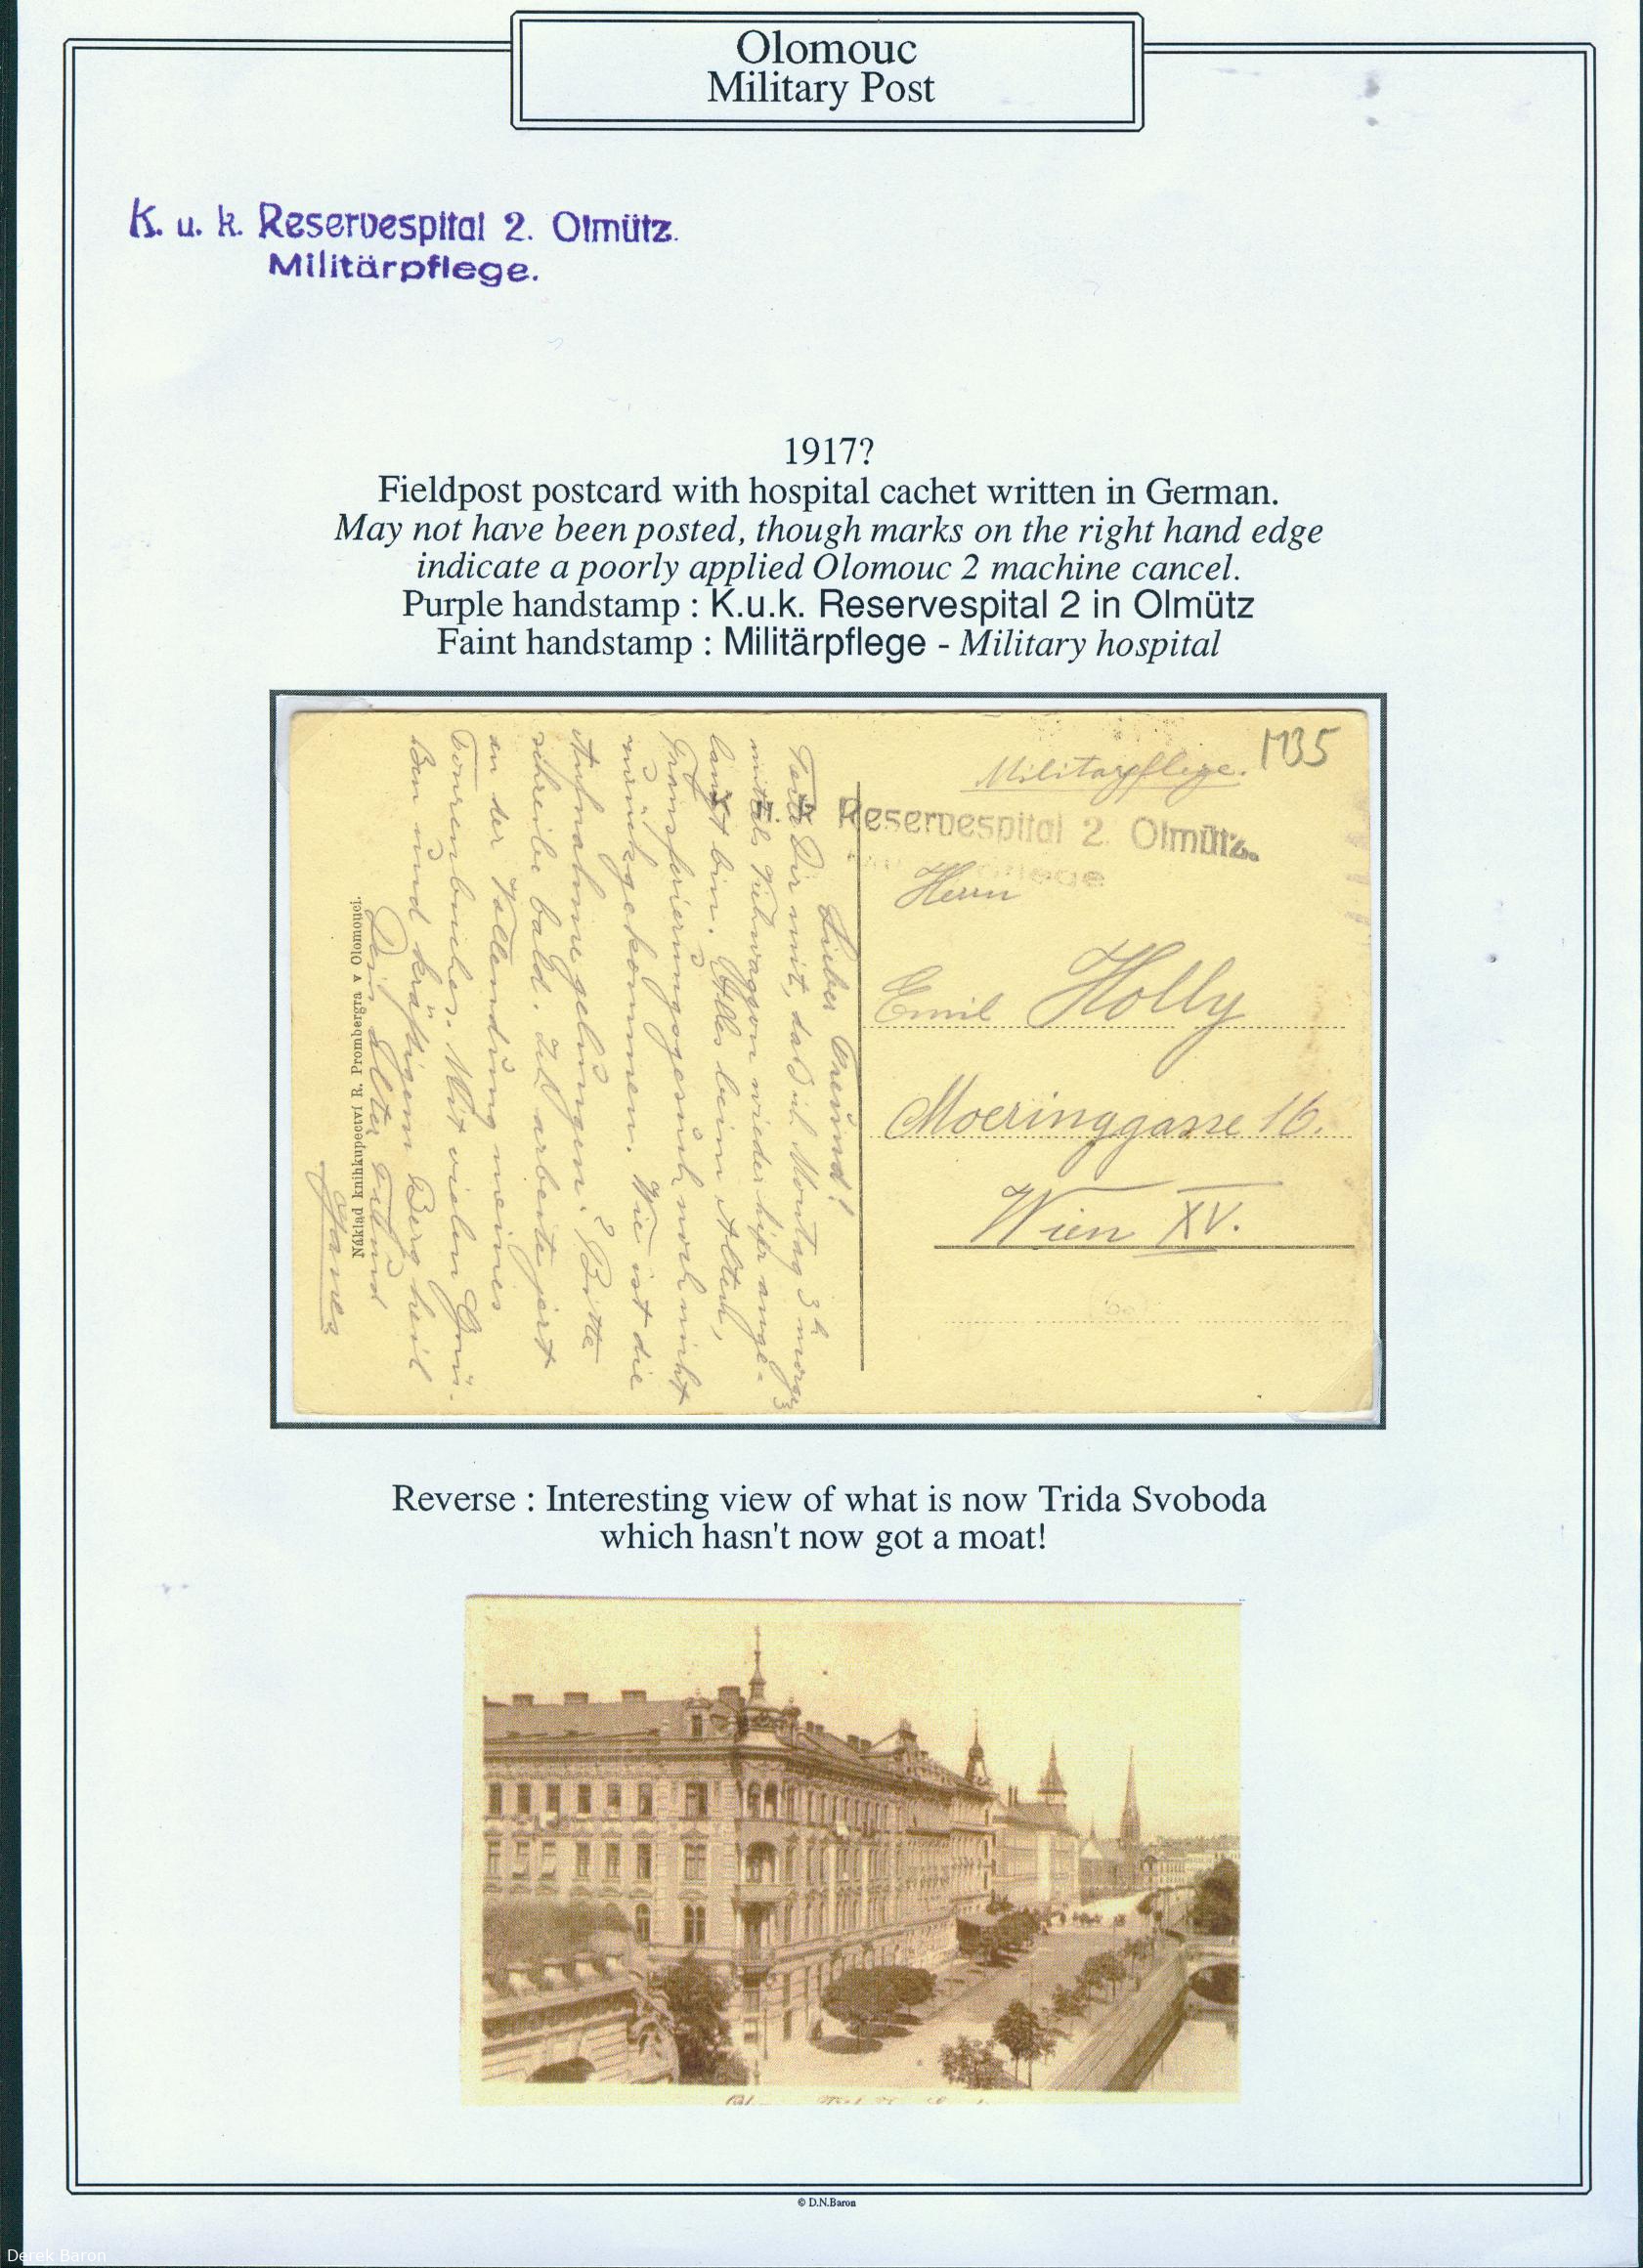 Olomouc
Military Post
K. u. k. Reservespital 2. Olmütz.
Militärpflege.
1917?
Fieldpost postcard with hospital cachet written in German.
May not have been posted, though marks on the right hand edge
indicate a poorly applied Olomouc 2 machine cancel.
Purple handstamp : K.u.k. Reservespital 2 in Olmütz
Faint handstamp : Militärpflege - Military hospital
1735
Militarpflege.
Reservespital 2. Olmütz.
Herrn
Emil Holly
Moeringgasse 16.
Wien XV.
Lieber Freund!
Teile Dir mit, daß ich Montag 3h morgs
mittels Viehwaggon wieder hier ange-
langt bin. Alles beim Alten,
Transferierungsgesuch noch nicht
zurückgekommen. Wie ist die
Aufnahme gelungen? Bitte
schreibe bald. Ich arbeite jetzt
an der Vollendung meines
Tourenbuches. Mit vielen Grü-
ßen und kräftigem Berg heil
Dein alter Freund
Náklad knihkupectví R. Prombergra v Olomouci.
Reverse : Interesting view of what is now Trida Svoboda
which hasn't now got a moat!
© D.N.Baron
Derek Baron